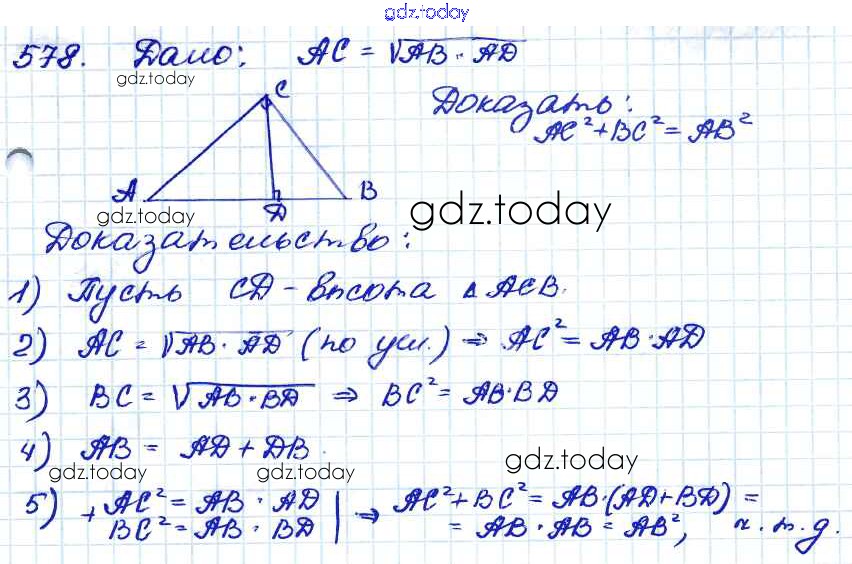 gdz.today
578. Дано: AC = √AB · AD
gdz.today
Доказать:
AC² + BC² = AB²
C
A
B
D
gdz.today
gdz.today
Доказательство:
1) Пусть CD - высота △ ACB.
2) AC = √AB · AD (по усл.) ⇒ AC² = AB · AD
3) BC = √AB · BD ⇒ BC² = AB · BD
4) AB = AD + DB.
gdz.today
gdz.today
gdz.today
5) + AC² = AB · AD | ⇒ AC² + BC² = AB · (AD + BD) =
BC² = AB · BD | = AB · AB = AB², ч. т. д.
gdz.today